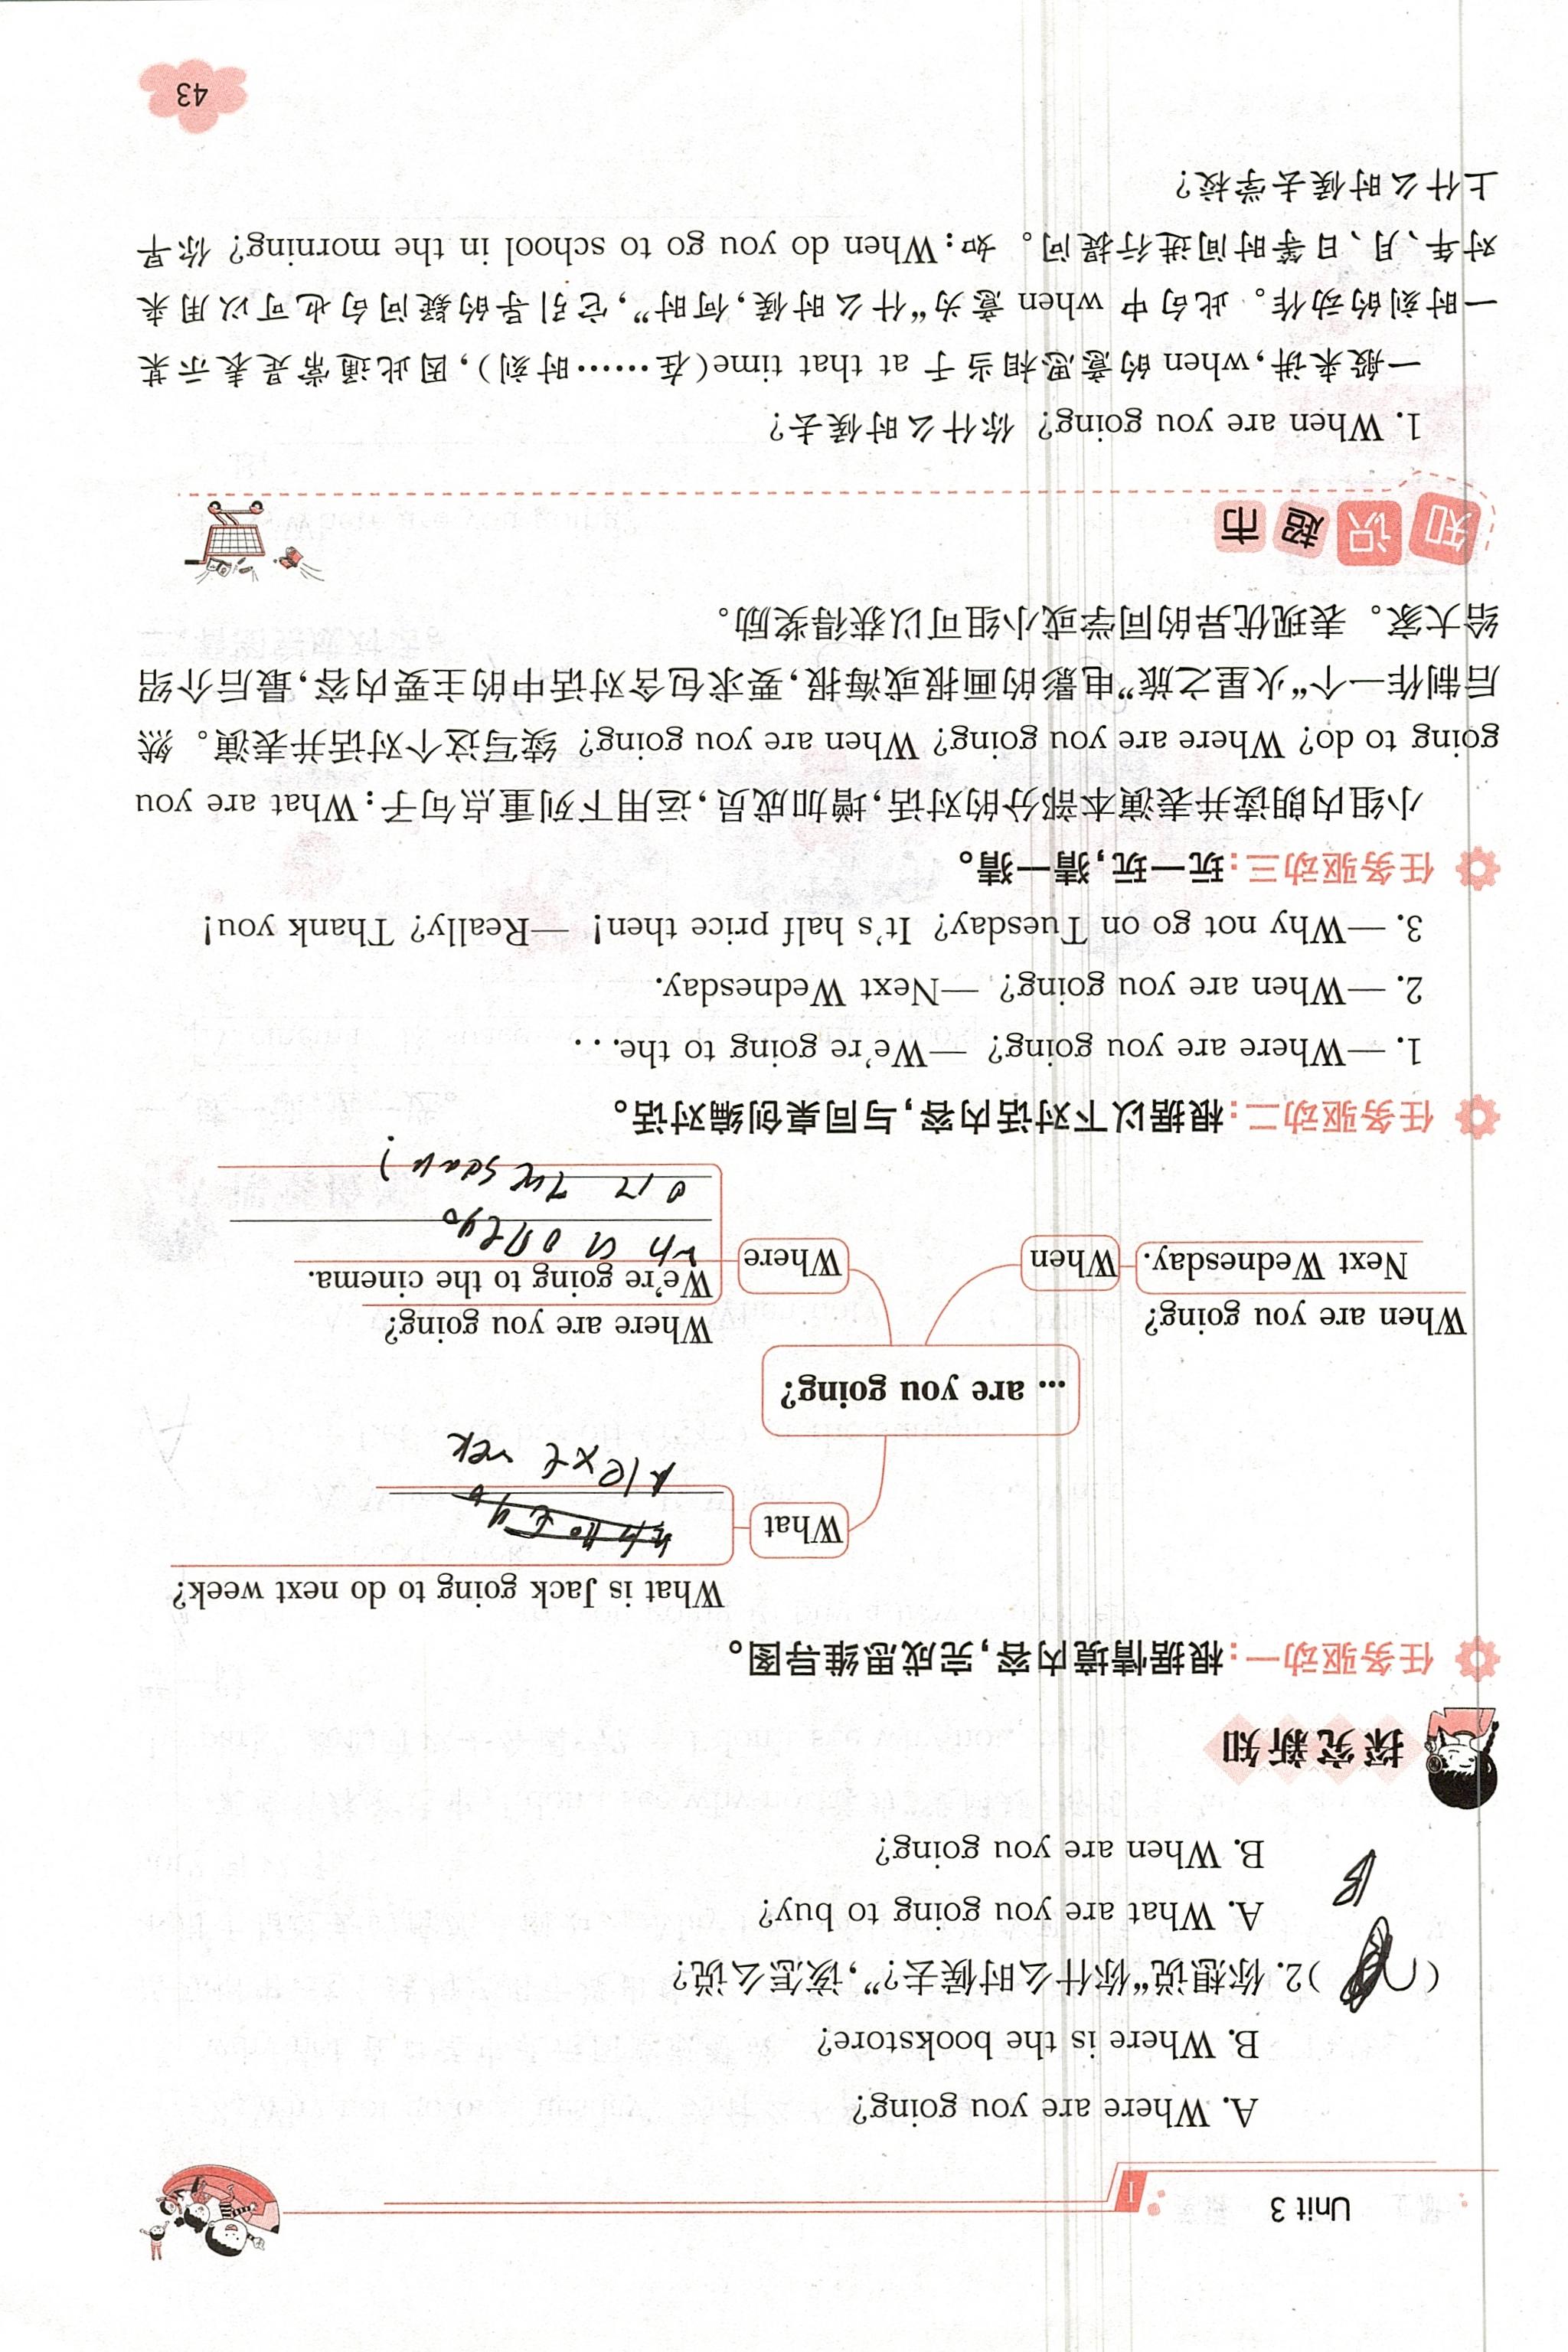 Unit 3
A. Where are you going?
B. Where is the bookstore?
( )2. 你想说“你什么时候去?”,该怎么说?
A. What are you going to buy?
B
B. When are you going?
探究新知
任务驱动一:根据情境内容,完成思维导图。
What is Jack going to do next week?
What
... are you going?
When are you going?
Next Wednesday.
When
Where
Where are you going?
We're going to the cinema.
任务驱动二:根据以下对话内容,与同桌创编对话。
1. —Where are you going? —We're going to the...
2. —When are you going? —Next Wednesday.
3. —Why not go on Tuesday? It's half price then! —Really? Thank you!
任务驱动三:玩一玩,猜一猜。
小组内朗读并表演本部分的对话,增加成员,运用下列重点句子:What are you
going to do? Where are you going? When are you going? 续写这个对话并表演。然
后制作一个“火星之旅”电影的画报或海报,要求包含对话中的主要内容,最后介绍
给大家。表现优异的同学或小组可以获得奖励。
知识超市
1. When are you going? 你什么时候去?
一般来讲,when 的意思相当于 at that time(在……时刻),因此通常是表示某
一时刻的动作。此句中 when 意为“什么时候,何时”,它引导的疑问句也可以用来
对年、月、日等时间进行提问。如:When do you go to school in the morning? 你早
上什么时候去学校?
43